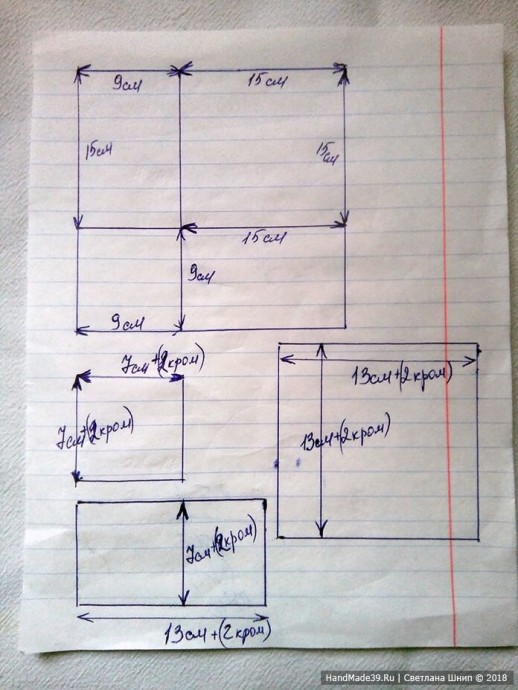 9см 15см
15см 15см
15см
9см
9см
7см+(2кром)
13см+(2кром)
7см+(2кром)
13см+(2кром)
7см+(2кром)
13см+(2кром)
HandMade39.Ru | Светлана Шнип © 2018